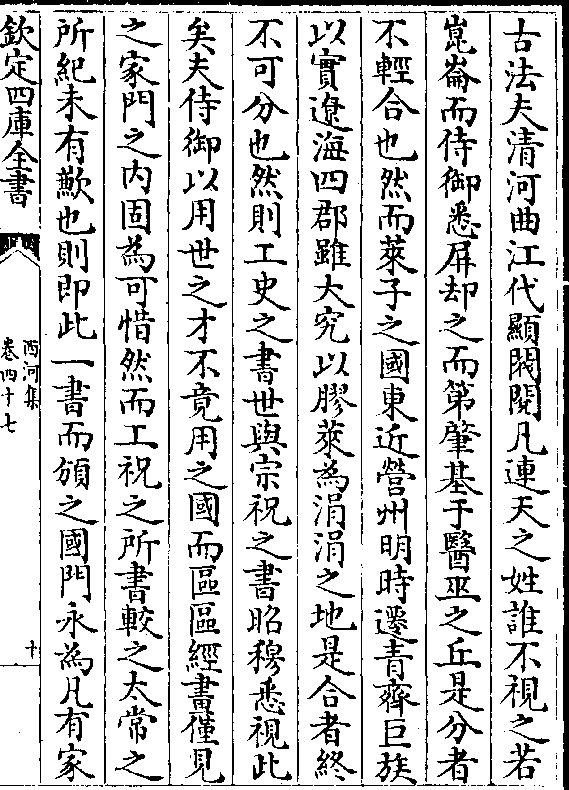 古法夫清河曲江代顯閥閱凡連天之姓誰不視之若
崑崙而侍御悉屏却之而第肇基于醫巫之丘是分者
不輕合也然而萊子之國東近營州明時遷青齊巨族
以實遼海四郡雖大究以膠萊為涓涓之地是合者終
不可分也然則工史之書世與宗祝之書昭穆悉視此
矣夫侍御以用世之才不竟用之國而區區經畫僅見
之家門之内固為可惜然而工祝之所書較之太常之
所紀未有歉也則即此一書而頒之國門永為凡有家
欽定四庫全書
西河集
卷四十七
十